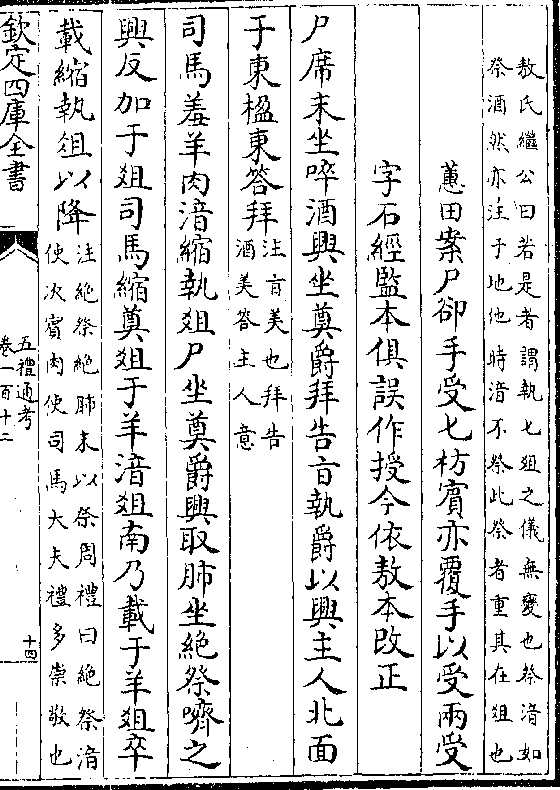 敖氏繼公曰若是者謂執匕俎之儀無變也祭湆如
祭酒然亦注于地他時湆不祭此祭者重其在俎也
蕙田案尸卻手受匕枋賓亦覆手以受兩受
字石經監本俱誤作授今依敖本改正
尸席末坐啐酒興坐奠爵拜告旨執爵以興主人北面
于東楹東答拜
注旨美也拜告
酒美答主人意
司馬羞羊肉湆縮執俎尸坐奠爵興取肺坐絶祭嚌之
興反加于俎司馬縮奠俎于羊湆俎南乃載于羊俎卒
載縮執俎以降
注絶祭絶肺末以祭周禮曰絶祭湆
使次賓肉使司馬大夫禮多崇敬也
欽定四庫全書
五禮通考
卷一百十二
十四